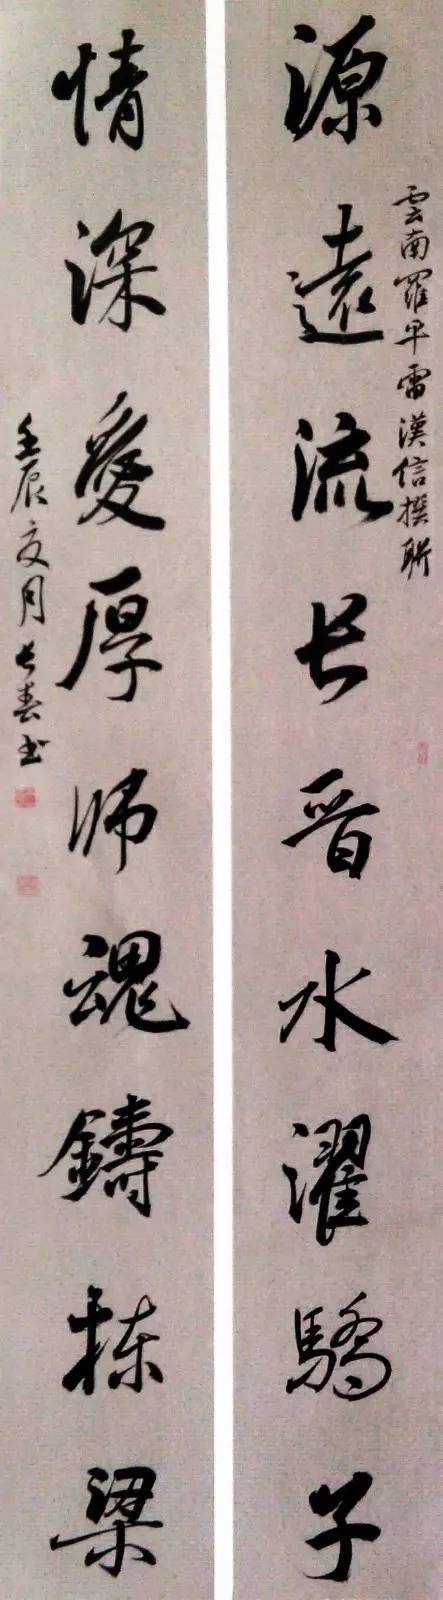 源遠流长晋水濯驕子
雲南羅平雷漢信撰联
情深愛厚师魂鑄栋梁
壬辰文月长春书